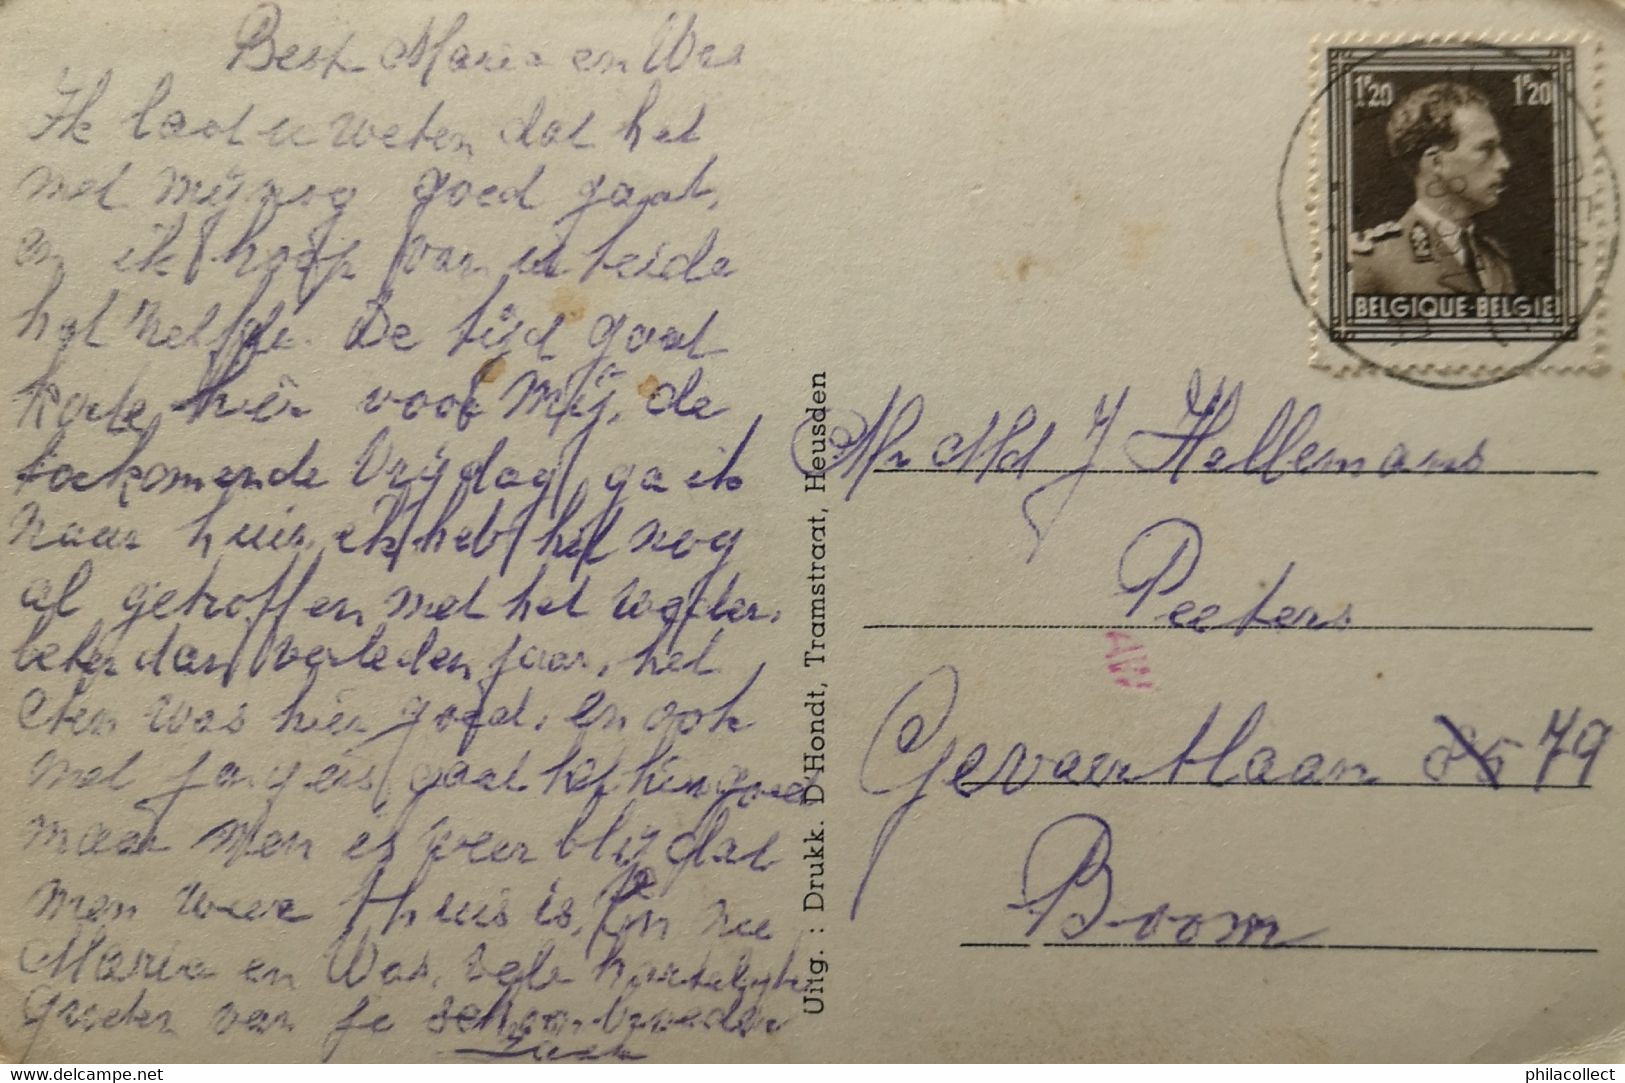 Best Maria en Was
Ik laat u weten dat het
met mij nog goed gaat,
en ik hoop van u beide
het zelfde. De tijd gaat
korte hier voor mij, de
toekomende Vrijdag ga ik
naar huis, ik heb het nog
al getroffen met het weder,
beter dan verleden jaar, het
eten was hier goed, en ook
met gaat het hier goed
maar men is weer blij dat
men weer thuis is, En nu
Maria en Was, vele hartelijke
groeten van je schoonbroeder
BELGIQUE-BELGIE
1F20 1F20
Mr Md J Hellemans
Peeters
Gevaertlaan 79
Boom
AW
Uitg. : Drukk. D'Hondt, Tramstraat, Heusden
philacollect